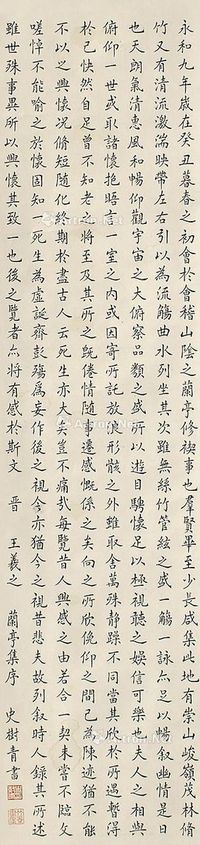 永和九年歲在癸丑暮春之初會於會稽山陰之蘭亭修禊事也羣賢畢至少長咸集此地有崇山峻嶺茂林修
竹又有清流激湍映帶左右引以為流觴曲水列坐其次雖無絲竹管絃之盛一觴一詠亦足以暢叙幽情是日
也天朗氣清惠風和暢仰觀宇宙之大俯察品類之盛所以遊目騁懷足以極視聽之娛信可樂也夫人之相與
俯仰一世或取諸懷抱晤言一室之內或因寄所託放浪形骸之外雖取舍萬殊靜躁不同當其欣於所遇暫得
於己快然自足曾不知老之將至及其所之既倦情隨事遷感慨係之矣向之所欣俛仰之間已為陳迹猶不能
不以之興懷况修短隨化終期於盡古人云死生亦大矣豈不痛哉每覽昔人興感之由若合一契未嘗不臨文
嗟悼不能喻之於懷固知一死生為虛誕齊彭殤為妄作後之視今亦猶今之視昔悲夫故列叙時人錄其所述
雖世殊事異所以興懷其致一也後之覽者亦將有感於斯文 晉 王羲之 蘭亭集序 史樹青書